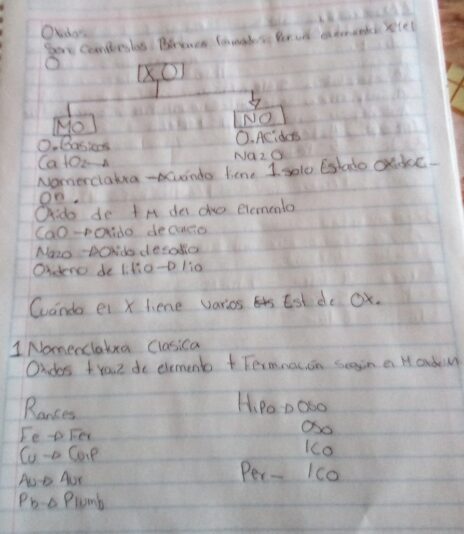 Oxidos
Son Compuestos Binarios formados Por un elemento X el
O
[X,O]
MO NO
O. Basicos O. Acidos
Na2O
Nomenclatura → Cuándo tiene 1 solo Estado Oxidac-
on.
Oxido de + M del otro elemento
CaO → Oxido de calcio
Na2O → Oxido de sodio
Cuándo el X tiene varios Est de Ox.
1 Nomenclatura Clasica
Oxidos + raiz de elemento + Terminación según el
Raices Hipo → Oso
Fe → Fer Oso
Cu → Cup Ico
Au → Aur Per- Ico
Pb → Plumb